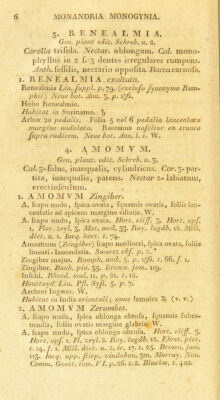 6 MONANDRIA MONOGYNIA.
5. RENEALMIA.
Gen. plant edit. Schreb. n. 2.
Corolla trifida. Nectar. oblongum. Cal. mono-
phyllus in 2 s. 3 dentes irregulares rumpens.
Anth. sessilis, nectario opposita. Bacca carnosa.
1. RENEALMIA exaltata.
Renealmia Lin. suppl. p. 79. (exclusо synonymo Rum-
phii) Neue bot. Ann. 3. p. 136.
Hohe Renealmie.
Habitat in Surinamo. ♄
Arbor 20 pedalis. Folia 5 vel 6 pedalia lanceolata
margine undulata. Racemus nascitur ex trunco
supra radicem. Neue bot. Ann. l. c. W.
4. AMOMUM.
Gen. plant. edit. Schreb. n. 3.
Cal. 3-fidus, inaequalis, cylindricus. Cor. 3-par-
tita, inaequalis, patens. Nectar 2-labiatum,
erectiusculum.
1. AMOMUM Zingiber.
A. scapo nudo, spica ovata, squamis ovatis, foliis lan-
ceolatis ad apicem margine ciliatis W.
A. scapo nudo, spica ovata. Hort. cliff. 3. Hort. upf.
1. Flor. zeyl. 3. Mat. med. 33. Roy. lugdb. 12. Mill.
dict. n. 1. Iacq. hort. 1. 74.
Amomum (Zingiber) scapo mediocri, spica ovata, foliis
lineari-lanceolatis. Swartz obs. p. 2.
Zingiber majus. Rumph. amb. 5. p. 156. t. 66. f. 1.
Zingiber. Bauh. pin. 35. Brown. jam. 119.
Inschi. Rheed. mal. 11. p. 21. t. 12.
Houttuyn Lin. Pfl. Syst. 5. p. 7.
Aechter Ingwer. W.
Habitat in India orientali; nunc Iamaica ♃ (v. v.)
2. AMOMUM Zerumbet.
A. scapo nudo, spica oblonga obtusa, squamis subro-
tundis, foliis ovatis margine glabris W.
A. scapo nudo, spica oblonga obtusa. Hort. cliff. 3.
Hort. upf. 1. Fl. zeyl. 2. Roy. lugdb. 12.